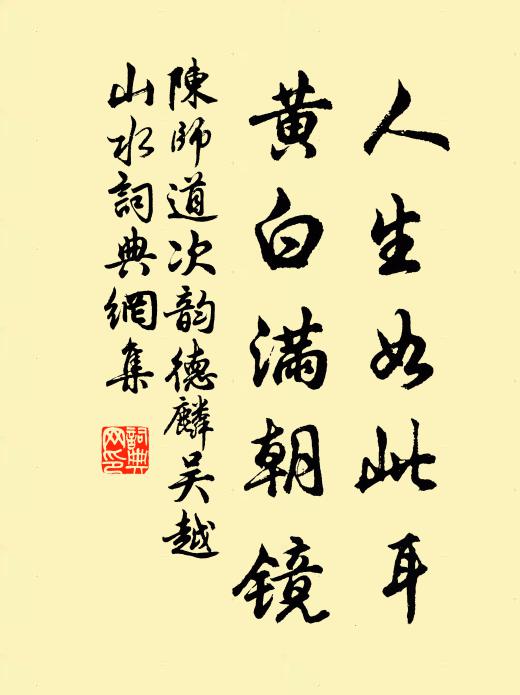 人生如此耳
黄白满朝镜
陳師道次韵德麟吴越
山水詞典網集
詞典
网印